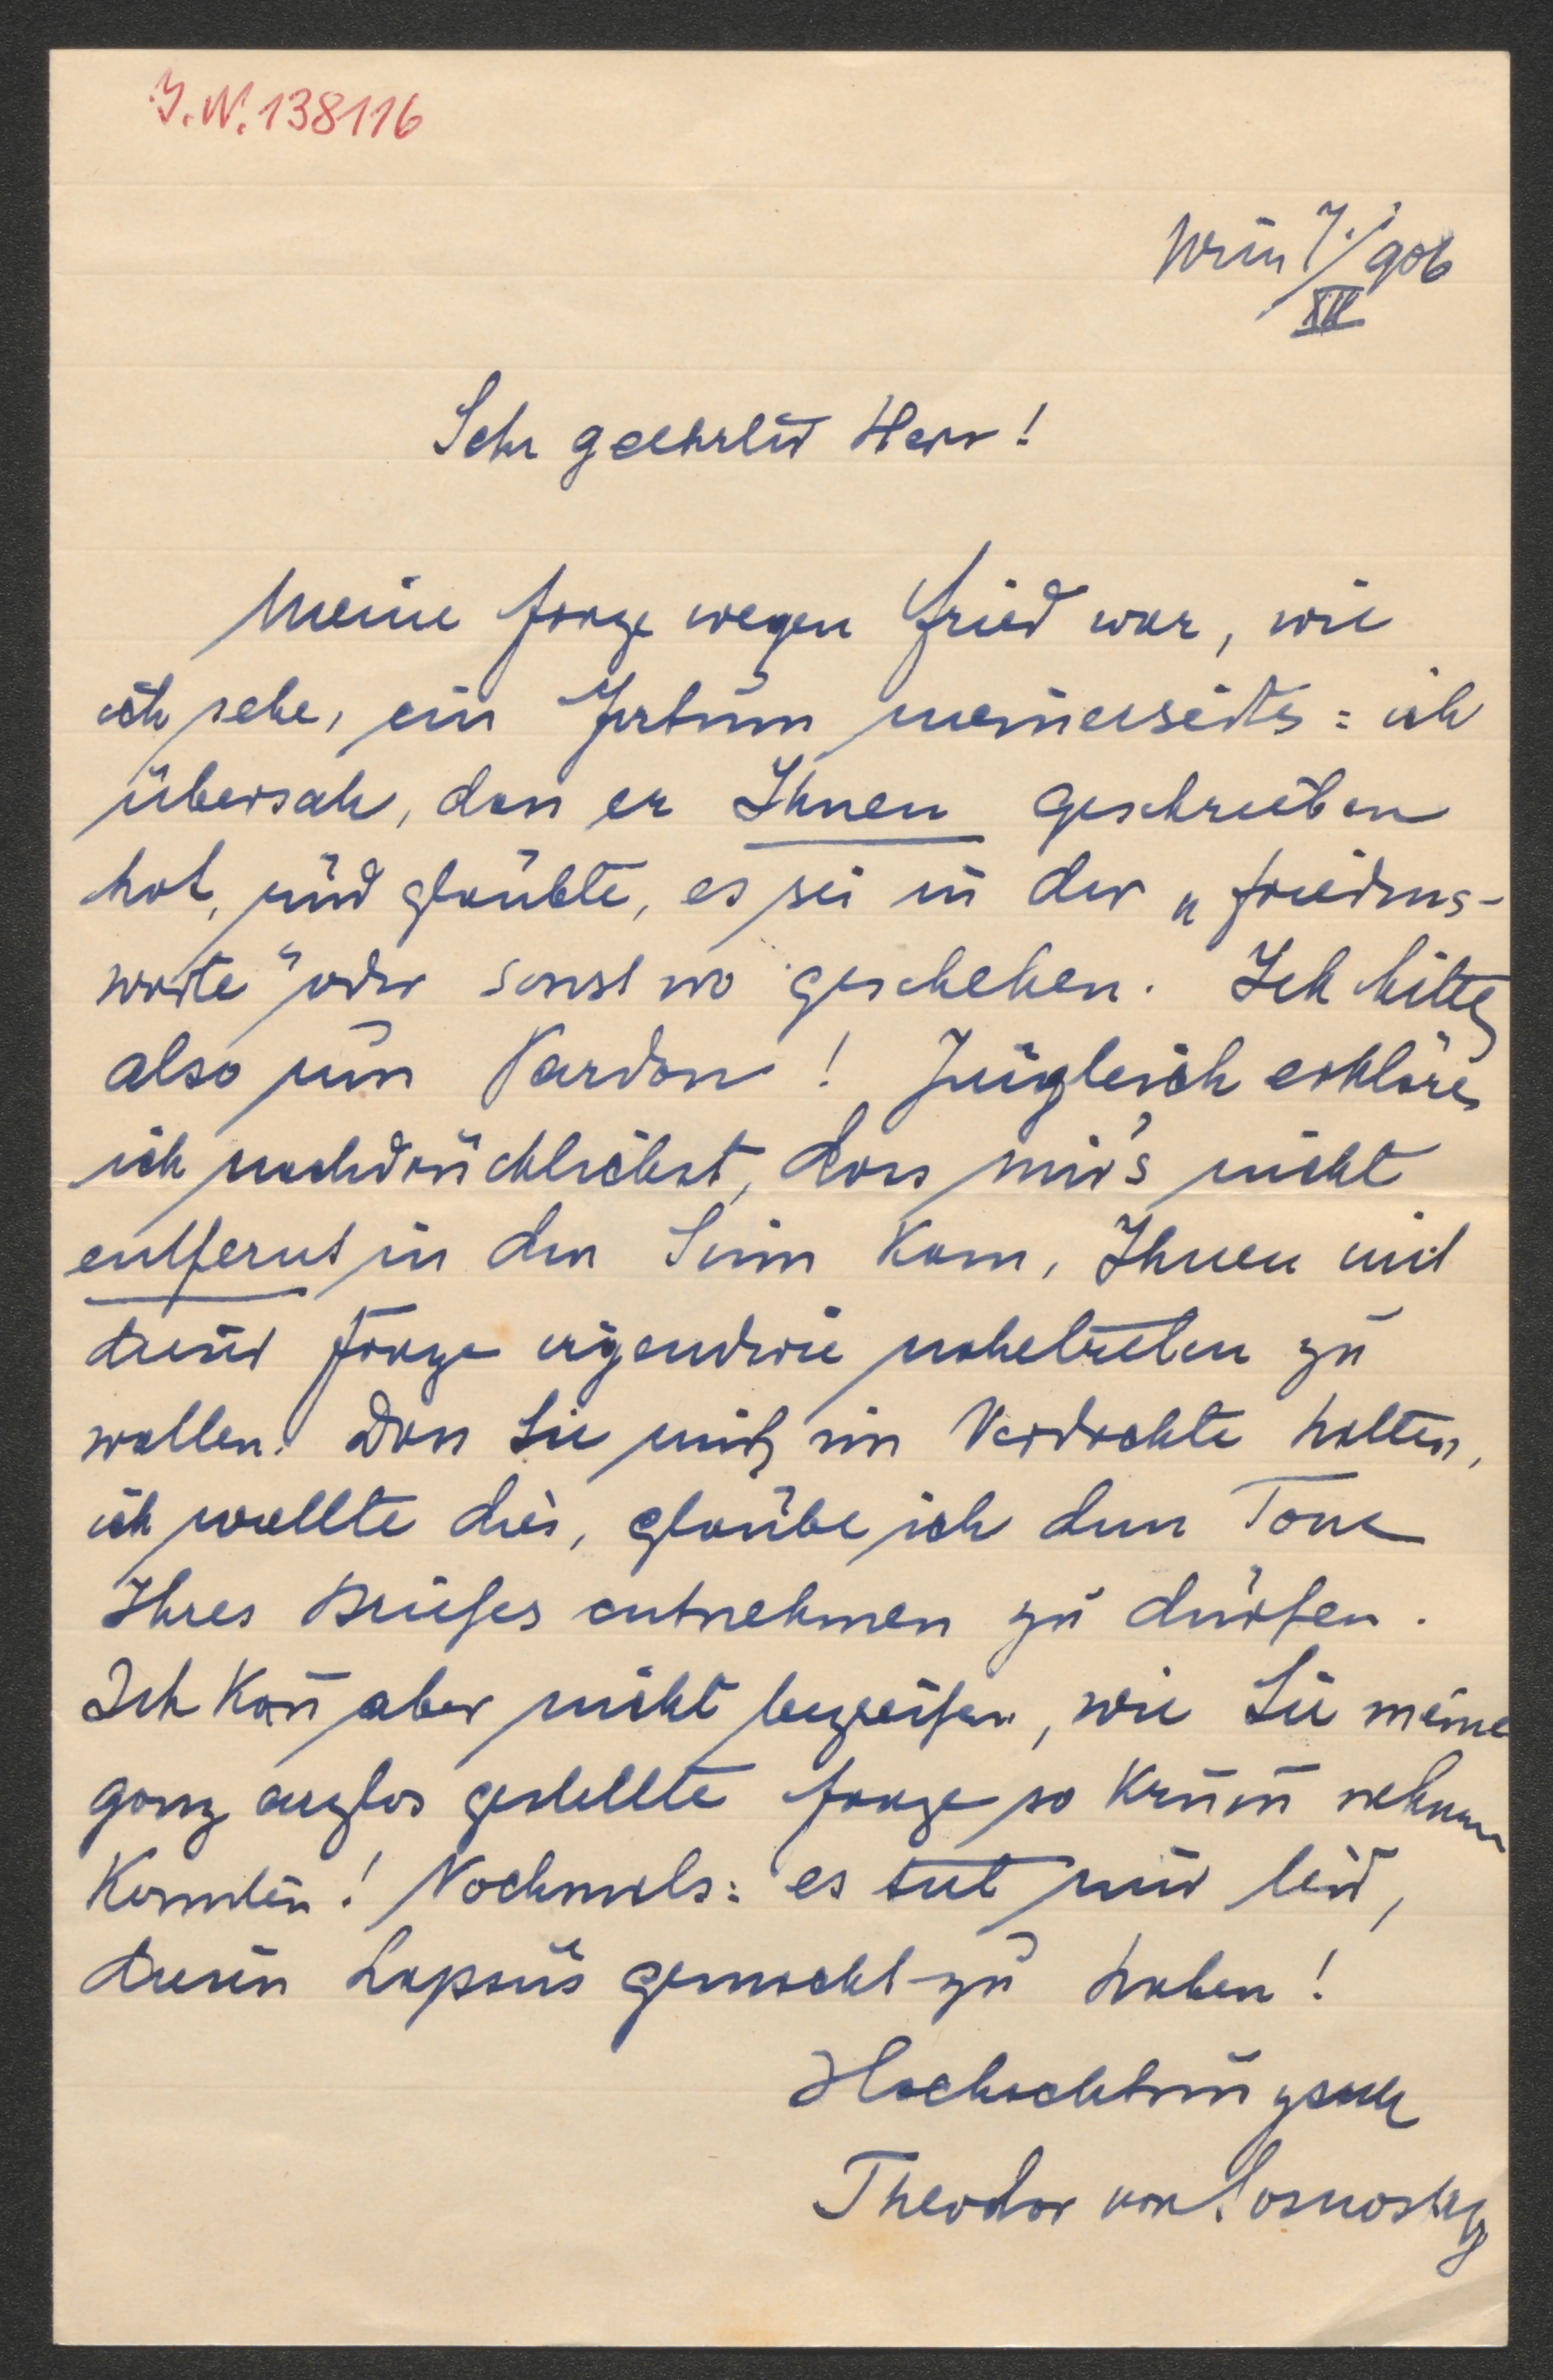 J.N. 138116
Wien 7./906
XII
Sehr geehrter Herr!
Meine Frage wegen Fried war, wie
ich sehe, ein Irrtum meinerseits: ich
übersah, dass er Ihnen geschrieben
hat, und glaubte, es sei in der „Friedens-
warte" oder sonst wo geschehen. Ich bitte
also um Pardon! Zugleich erkläre
ich nachdrücklichst, dass mir's nicht
entfernt in den Sinn kam, Ihnen mit
dieser Frage irgendwie nahetreten zu
wollen. Dass Sie mich im Verdachte hatten,
ich wollte dies, glaube ich dem Tone
Ihres Briefes entnehmen zu dürfen.
Ich kan̄ aber nicht begreifen, wie Sie meine
ganz arglos gestellte Frage so krum̄ nehmen
konnten! Nochmals: es tut mir leid,
diesen Lapsus gemacht zu haben!
Hochachtungsvoll
Theodor von Sosnosky